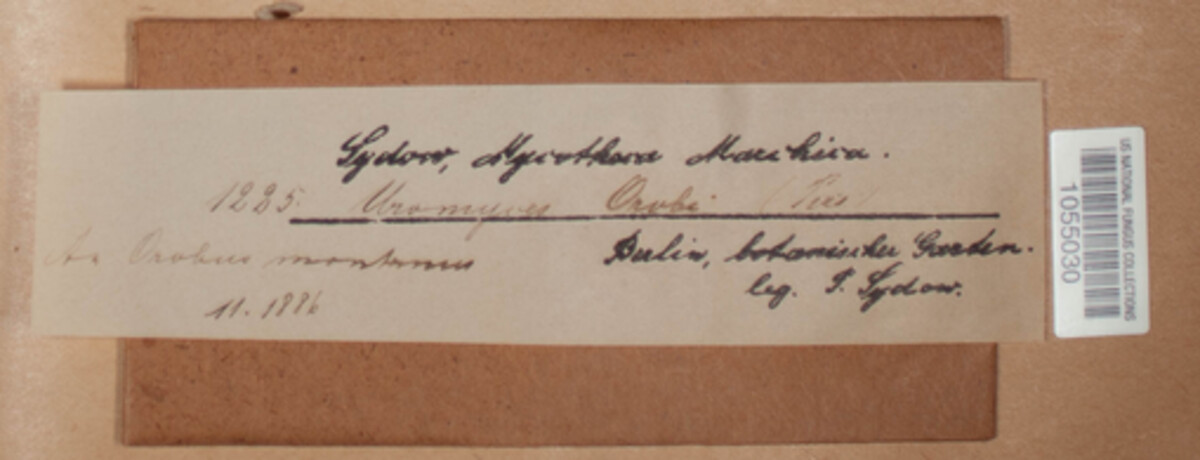 Sydow, Mycotheca Marchica.
1225. Uromyces Orobi (Pers)
An Orobus montanus
Berlin, botanischer Garten.
11. 1886
leg. P. Sydow.
US NATIONAL FUNGUS COLLECTIONS
1055030